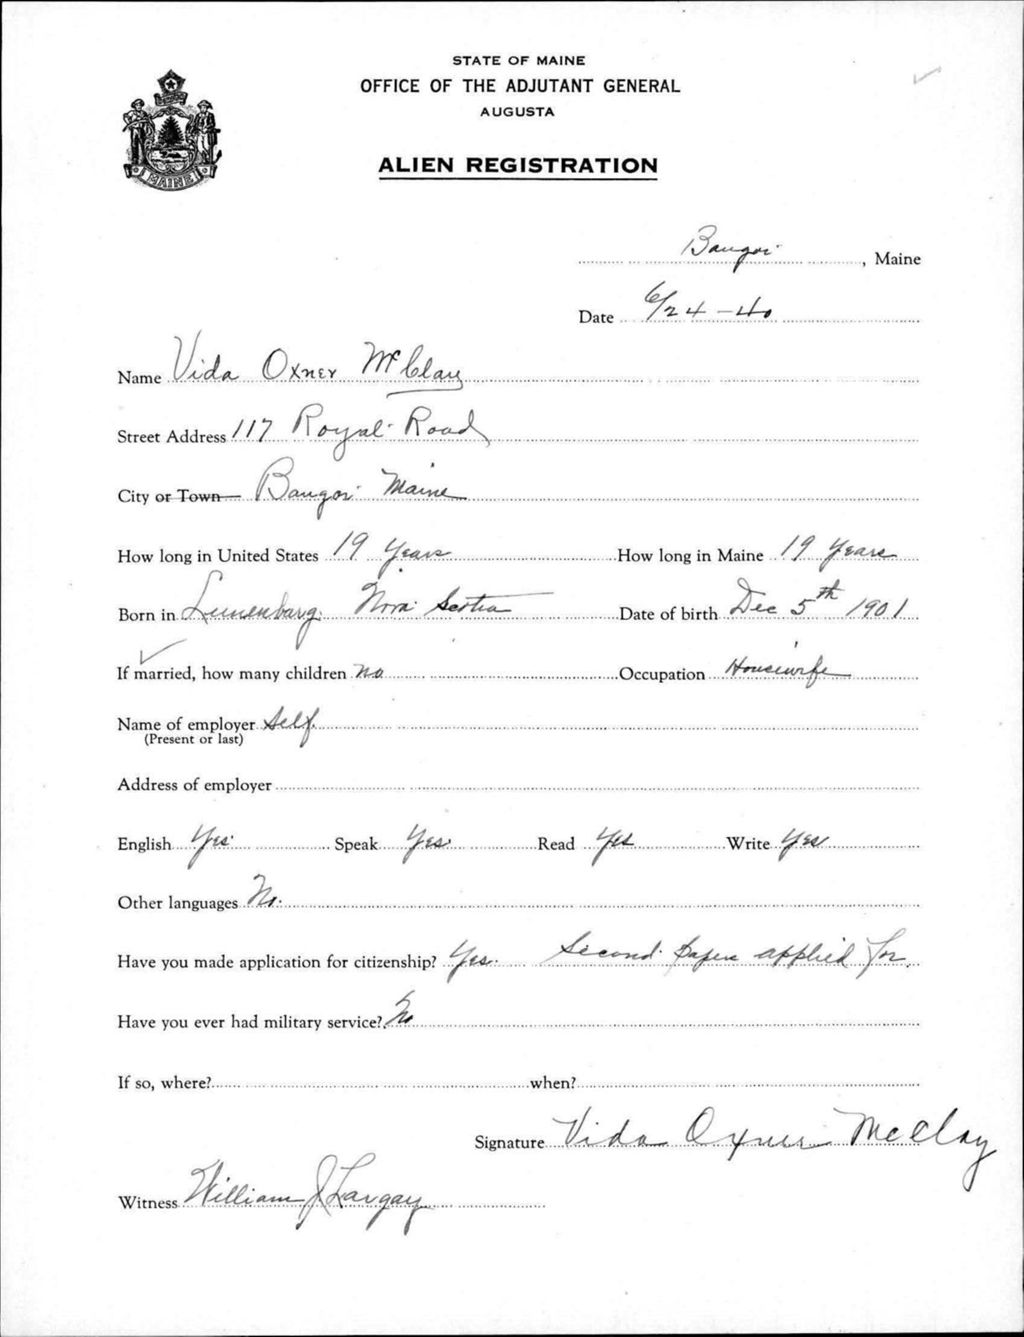 STATE OF MAINE
OFFICE OF THE ADJUTANT GENERAL
AUGUSTA
ALIEN REGISTRATION
MAINE
Bangor, Maine
Date 6/24-40
Name Vida Oxner McClay
Street Address 117 Royal Road
City or Town Bangor Maine
How long in United States 19 Years How long in Maine 19 Years
Born in Lunenburg, Nova Scotia Date of birth Dec 5th 1901
If married, how many children no Occupation Housewife
Name of employer Self
(Present or last)
Address of employer
English Yes Speak Yes Read Yes Write Yes
Other languages No.
Have you made application for citizenship? Yes. Second paper applied for.
Have you ever had military service? No
If so, where? when?
Signature Vida Oxner McClay
Witness William J Largay